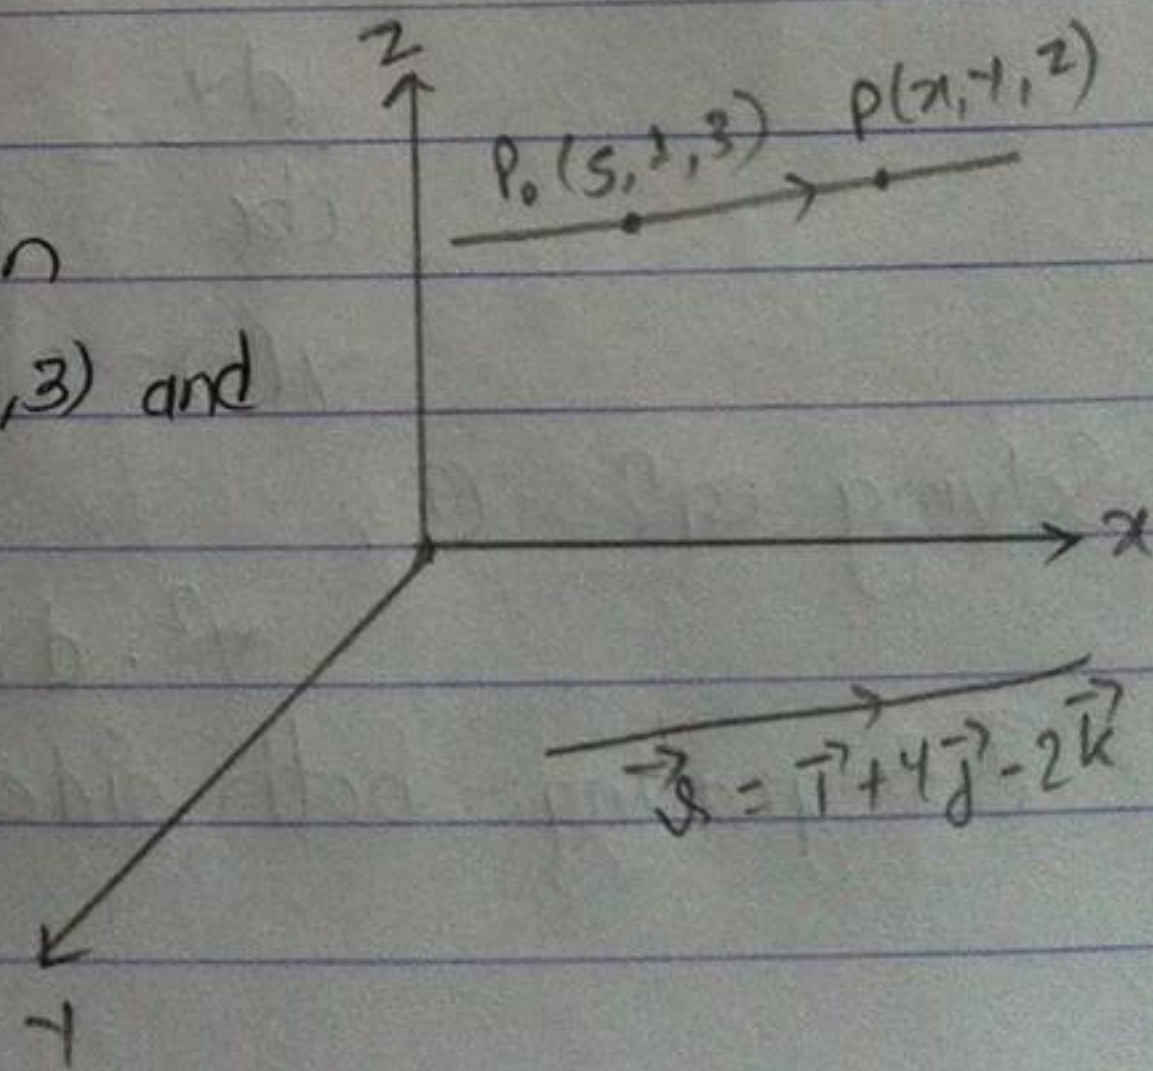 Z
P₀(5,1,3) P(x,y,z)
n
,3) and
x
v⃗ = i⃗ + 4j⃗ - 2k⃗
Y